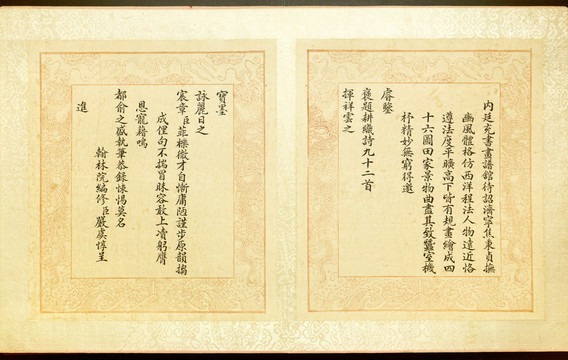 內廷充書畫譜館待詔濟寧焦秉貞撫
豳風體格仿西洋程法人物遠近恪
遵法度平曠高下皆有規畫繪成四
十六圖田家景物曲盡其致蠶室機
杼精妙無窮得邀
睿鑒
褒題耕織詩九十二首
揮祥雲之
寶墨
詠麗日之
宸章臣菲樸微才自慚庸陋謹步原韻搊
成俚句不揣冒昧容敢上凟躬膺
恩寵藉鳴
都俞之盛執筆恭錄悚惕莫名
翰林院編修臣嚴虞惇呈
進